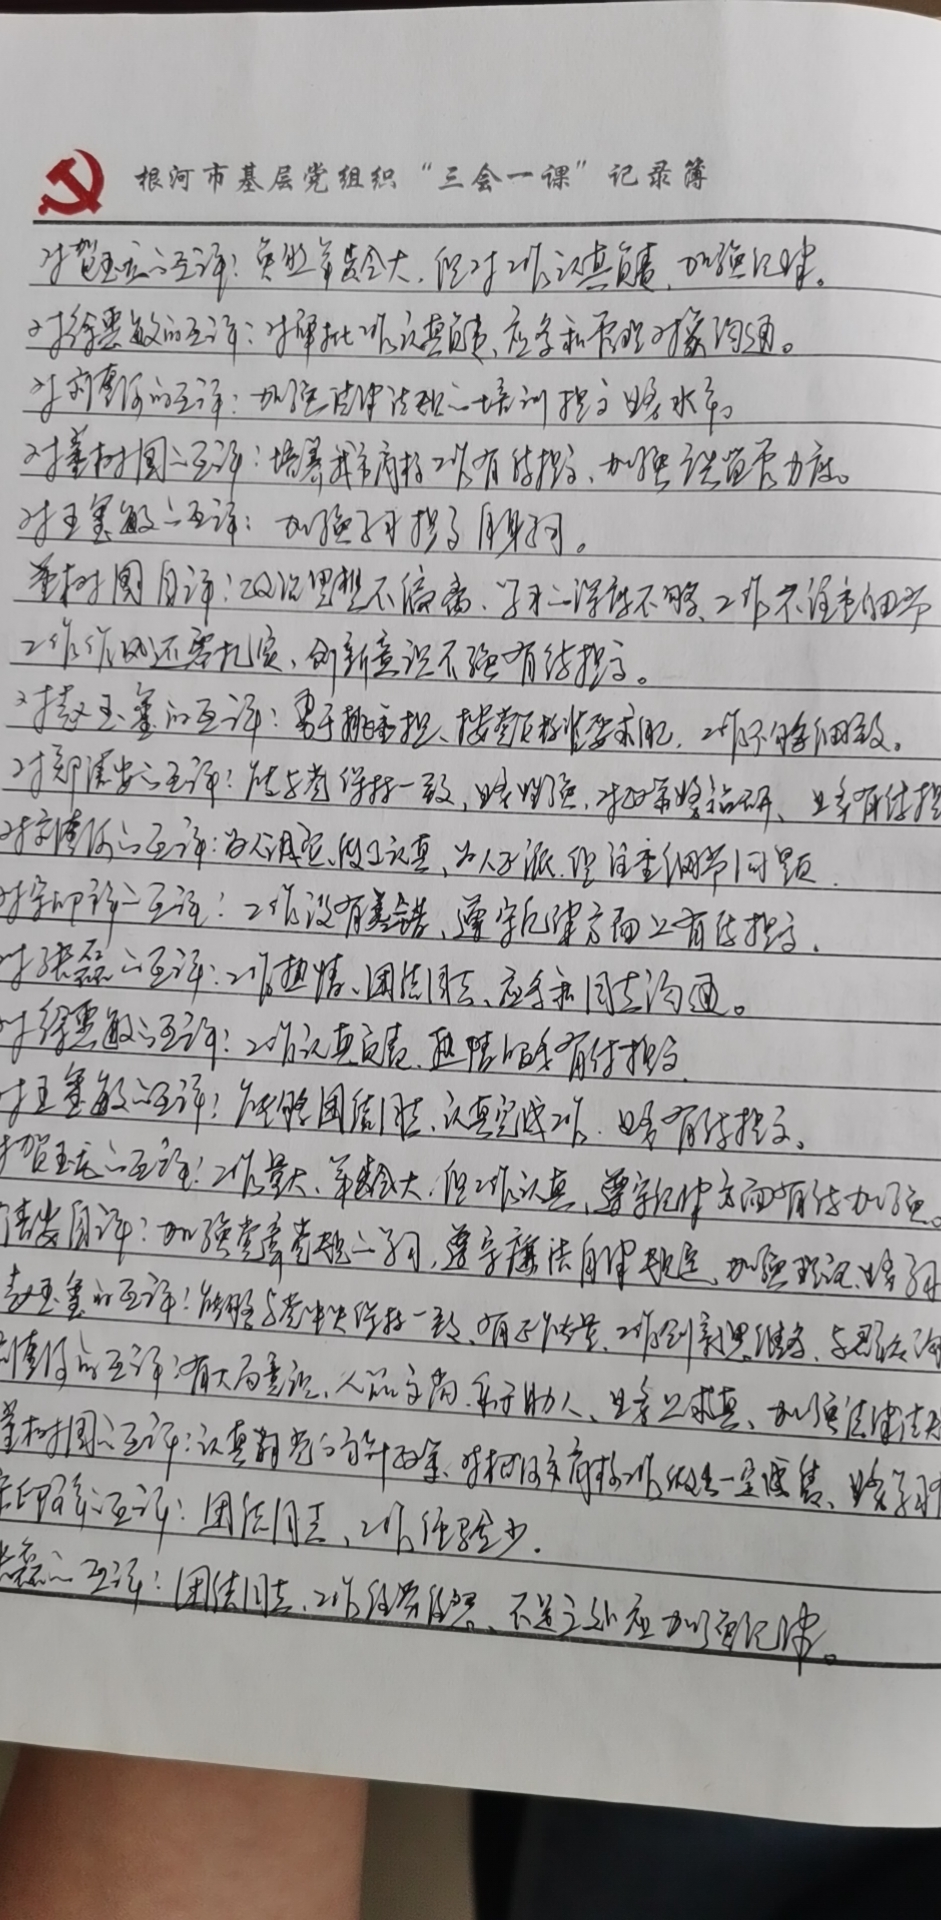 根河市基层党组织“三会一课”记录簿
对贺玉龙的互评：负担单发会大，但对工作认真负责，加强纪律。
对徐惠敏的互评：对审批工作认真负责、应多和管理对象沟通。
对刘德河的互评：加强法律法规的培训提高业务水平。
对董树国的互评：培养我市商标工作有待提高、加强监管力度。
对王鑫敏的互评：加强学习提高自身学习。
董树国自评：政治思想不偏离、学习的深度不够、工作不注意细节
工作作风还需扎实、创新意识不强有待提高。
对赵玉鑫的互评：勇于挑重担、按党员标准要求自己，工作不够细致。
对郑 的互评：能与党保持一致，业务 强，对政策 钻研、业务有待提
对刘德河的互评：为人谦虚、做工认真、为人正派，但注重细节问题
对 的互评：工作没有差错、遵守纪律方面上有待提高。
对张磊的互评：工作热情、团结同志、应多和同志沟通。
对徐惠敏的互评：工作认真负责、热情 有待提高
对王鑫敏的互评：能够团结同志、认真完成工作、业务有待提高。
对贺玉龙的互评：工作量大、 大，但工作认真，遵守纪律方面有待加强。
自评：加强党章党规的学习，遵守廉法自律规定、加强理论、业务学习
赵玉鑫的互评：能够与党中央保持一致、有正能量、工作创新思维多、与群众沟
刘德河的互评：有大局意识、人品高尚、乐于助人、业务上求真、加强法律法规
董树国的互评：认真 党的方针政策、对 商标工作做出一定 、业务学习
的互评：团结同志、工作经验少。
张磊的互评：团结同志、工作任劳任怨、不足之处应加强纪律。